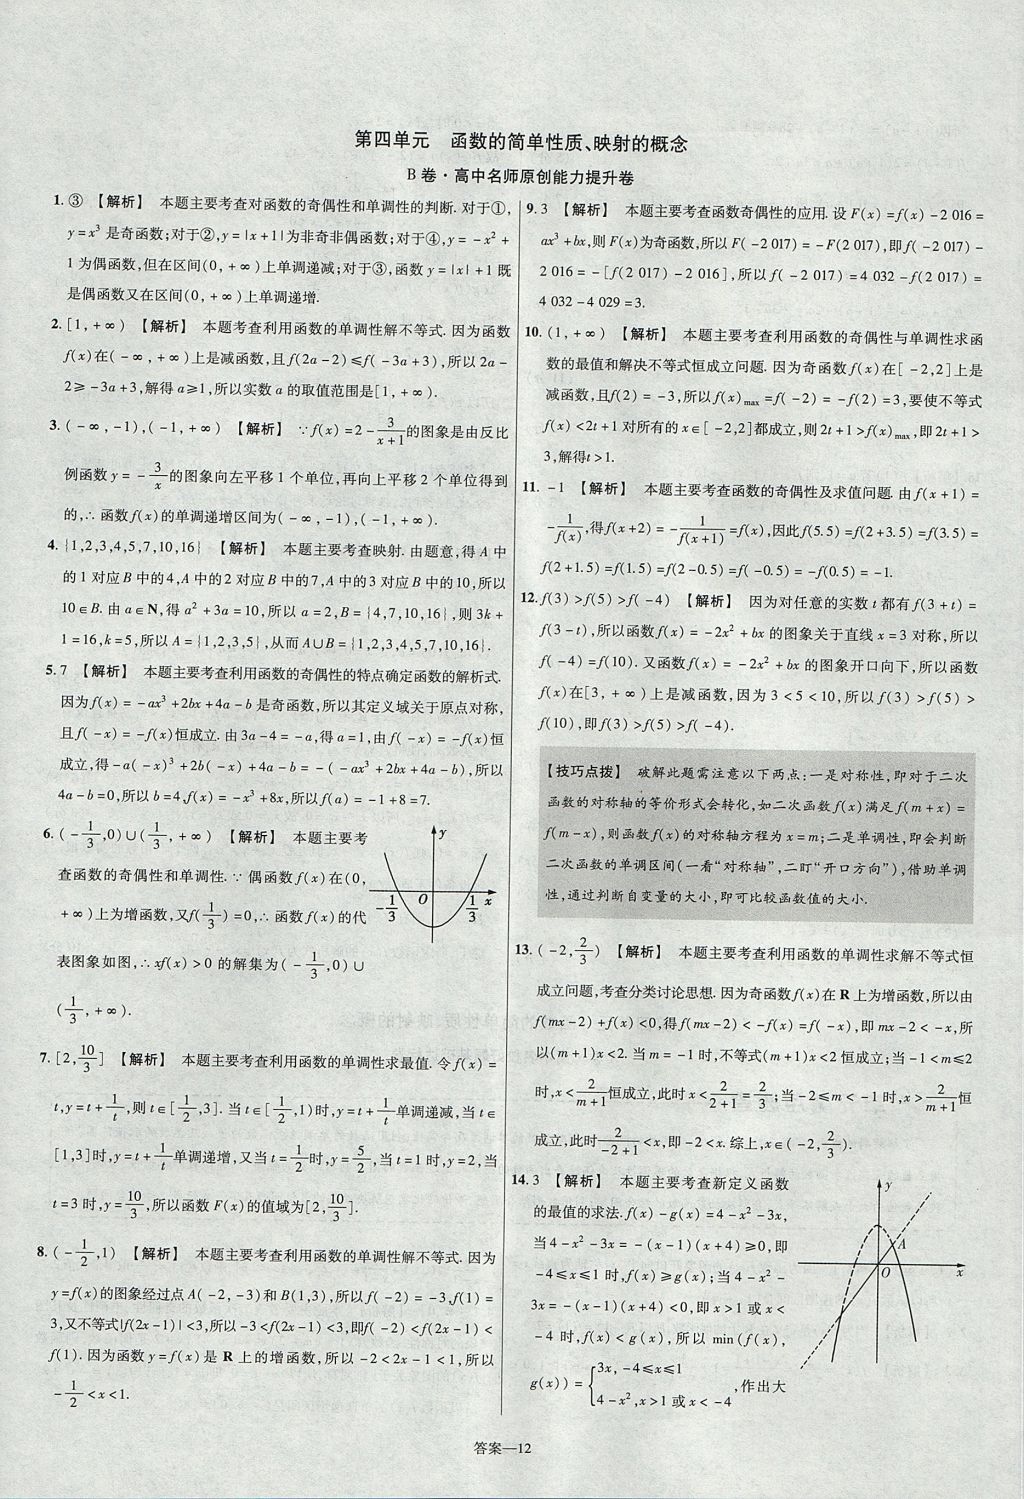 第四单元　函数的简单性质、映射的概念
B 卷·高中名师原创能力提升卷
1. ③ 【解析】 本题主要考查对函数的奇偶性和单调性的判断. 对于①,
y=x³ 是奇函数;对于②,y=|x+1|为非奇非偶函数;对于④,y=-x²+
1为偶函数,但在区间(0,+∞)上单调递减;对于③,函数 y=|x|+1 既
是偶函数又在区间(0,+∞)上单调递增.
2. [1,+∞) 【解析】 本题考查利用函数的单调性解不等式. 因为函数
f(x)在(-∞,+∞)上是减函数,且f(2a-2)≤f(-3a+3),所以2a-
2≥-3a+3,解得 a≥1,所以实数 a 的取值范围是[1,+∞).
3. (-∞,-1),(-1,+∞) 【解析】 ∵f(x)=2-3/(x+1)的图象是由反比
例函数 y=-3/x的图象向左平移 1 个单位,再向上平移 2 个单位得到
的,∴函数 f(x)的单调递增区间为(-∞,-1),(-1,+∞).
4. {1,2,3,4,5,7,10,16} 【解析】 本题主要考查映射. 由题意,得 A 中
的 1 对应 B 中的 4,A 中的 2 对应 B 中的 7,A 中的 3 对应 B 中的 10,所以
10∈B. 由 a∈N,得 a²+3a=10,所以 a=2,B={4,7,10,16},则 3k+
1=16,k=5,所以 A={1,2,3,5},从而A∪B={1,2,3,4,5,7,10,16}.
5. 7 【解析】 本题主要考查利用函数的奇偶性的特点确定函数的解析式.
因为f(x)=-ax³+2bx+4a-b 是奇函数,所以其定义域关于原点对称,
且 f(-x)=-f(x)恒成立. 由 3a-4=-a,得 a=1,由 f(-x)=-f(x)恒
成立,得-a(-x)³+2b(-x)+4a-b=-(-ax³+2bx+4a-b),所以
4a-b=0,所以 b=4,f(x)=-x³+8x,所以f(a)=-1+8=7.
6. (-1/3,0)∪(1/3,+∞) 【解析】 本题主要考
查函数的奇偶性和单调性. ∵偶函数f(x)在(0,
+∞)上为增函数,又f(1/3)=0,∴函数 f(x)的代
表图象如图,∴xf(x)>0 的解集为(-1/3,0)∪
(1/3,+∞).
y
-1/3 O 1/3 x
7. [2,10/3] 【解析】 本题主要考查利用函数的单调性求最值. 令 f(x)=
t,y=t+1/t,则 t∈[1/2,3]. 当 t∈[1/2,1)时,y=t+1/t单调递减,当 t∈
[1,3]时,y=t+1/t单调递增,又当 t=1/2时,y=5/2,当 t=1 时,y=2,当
t=3 时,y=10/3,所以函数 F(x)的值域为[2,10/3].
8. (-1/2,1) 【解析】 本题主要考查利用函数的单调性解不等式. 因为
y=f(x)的图象经过点 A(-2,-3)和 B(1,3),所以 f(-2)=-3,f(1)=
3,又不等式|f(2x-1)|<3,所以-3<f(2x-1)<3,即f(-2)<f(2x-1)<
f(1). 因为函数 y=f(x)是 R 上的增函数,所以 -2<2x-1<1,所以
-1/2<x<1.
9. 3 【解析】 本题主要考查函数奇偶性的应用. 设 F(x)=f(x)-2 016=
ax³+bx,则 F(x)为奇函数,所以 F(-2 017)=-F(2 017),即f(-2 017)-
2 016=-[f(2 017)-2 016],所以 f(-2 017)=4 032-f(2 017)=
4 032-4 029=3.
10. (1,+∞) 【解析】 本题主要考查利用函数的奇偶性与单调性求函
数的最值和解决不等式恒成立问题. 因为奇函数f(x)在[-2,2]上是
减函数,且f(2)=-3,所以f(x)max=f(-2)=-f(2)=3,要使不等式
f(x)<2t+1 对所有的 x∈[-2,2]都成立,则2t+1>f(x)max,即2t+1>
3,解得t>1.
11. -1 【解析】 本题主要考查函数的奇偶性及求值问题. 由f(x+1)=
-1/f(x),得f(x+2)=-1/f(x+1)=f(x),因此f(5.5)=f(2+3.5)=f(3.5)=
f(2+1.5)=f(1.5)=f(2-0.5)=f(-0.5)=-f(0.5)=-1.
12. f(3)>f(5)>f(-4) 【解析】 因为对任意的实数 t 都有 f(3+t)=
f(3-t),所以函数 f(x)=-2x²+bx 的图象关于直线 x=3 对称,所以
f(-4)=f(10). 又函数 f(x)=-2x²+bx 的图象开口向下,所以函数
f(x)在[3,+∞)上是减函数,因为 3<5<10,所以 f(3)>f(5)>
f(10),即 f(3)>f(5)>f(-4).
【技巧点拨】 破解此题需注意以下两点:一是对称性,即对于二次
函数的对称轴的等价形式会转化,如二次函数 f(x)满足 f(m+x)=
f(m-x),则函数 f(x)的对称轴方程为 x=m;二是单调性,即会判断
二次函数的单调区间(一看“对称轴”,二盯“开口方向”),借助单调
性,通过判断自变量的大小,即可比较函数值的大小.
13. (-2,2/3) 【解析】 本题主要考查利用函数的单调性求解不等式恒
成立问题,考查分类讨论思想. 因为奇函数f(x)在 R 上为增函数,所以由
f(mx-2)+f(x)<0,得f(mx-2)<-f(x)=f(-x),即mx-2<-x,所
以(m+1)x<2. 当 m=-1 时,不等式(m+1)x<2 恒成立;当 -1<m≤2
时,x<2/(m+1)恒成立,此时x<2/(2+1)=2/3;当 -2≤m<-1 时,x>2/(m+1)恒
成立,此时2/(-2+1)<x,即 -2<x. 综上,x∈(-2,2/3).
14. 3 【解析】 本题主要考查新定义函数
的最值的求法.f(x)-g(x)=4-x²-3x,
当4-x²-3x=-(x-1)(x+4)≥0,即
-4≤x≤1 时,f(x)≥g(x);当 4-x²-
3x=-(x-1)(x+4)<0,即 x>1 或 x<
-4 时,f(x)<g(x),所以 min(f(x),
g(x))={3x,-4≤x≤1
4-x²,x>1 或 x<-4,作出大
y
A
O x
答案—12